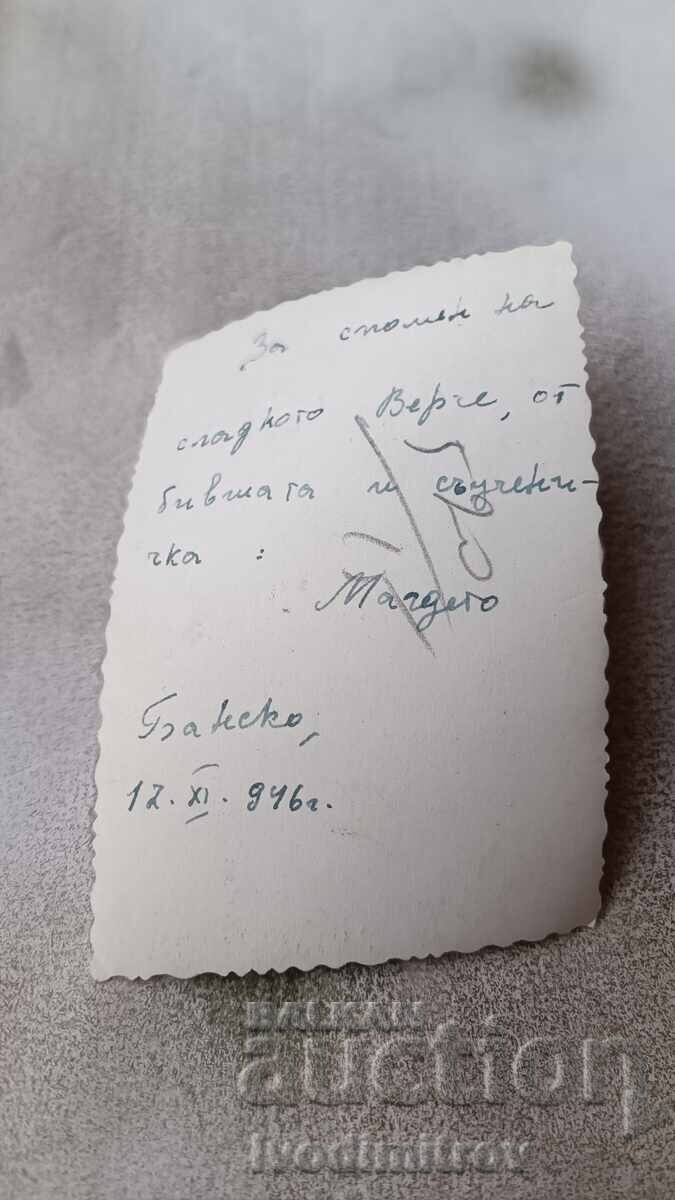 За спомен на
сладкото Верче, от
бившата и съучени-
чка:
Магдето
Банско,
12. XI. 946г.
БАЛКАН
auction
ivodimitrov